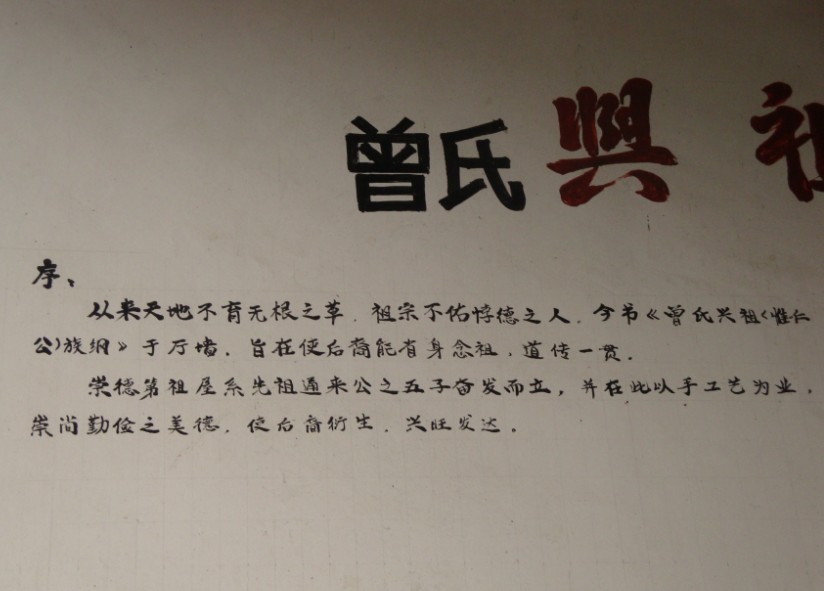 曾氏興祖
序、
从来天地不育无根之草．祖宗不佑悖德之人．今书《曾氏兴祖〈惟仁
公〉族纲》于厅墙．旨在使后裔能有身念祖．道传一贯．
崇德第祖屋系先祖通来公之五子奋发而立，并在此以手工艺为业，
崇尚勤俭之美德．使后裔衍生．兴旺发达。